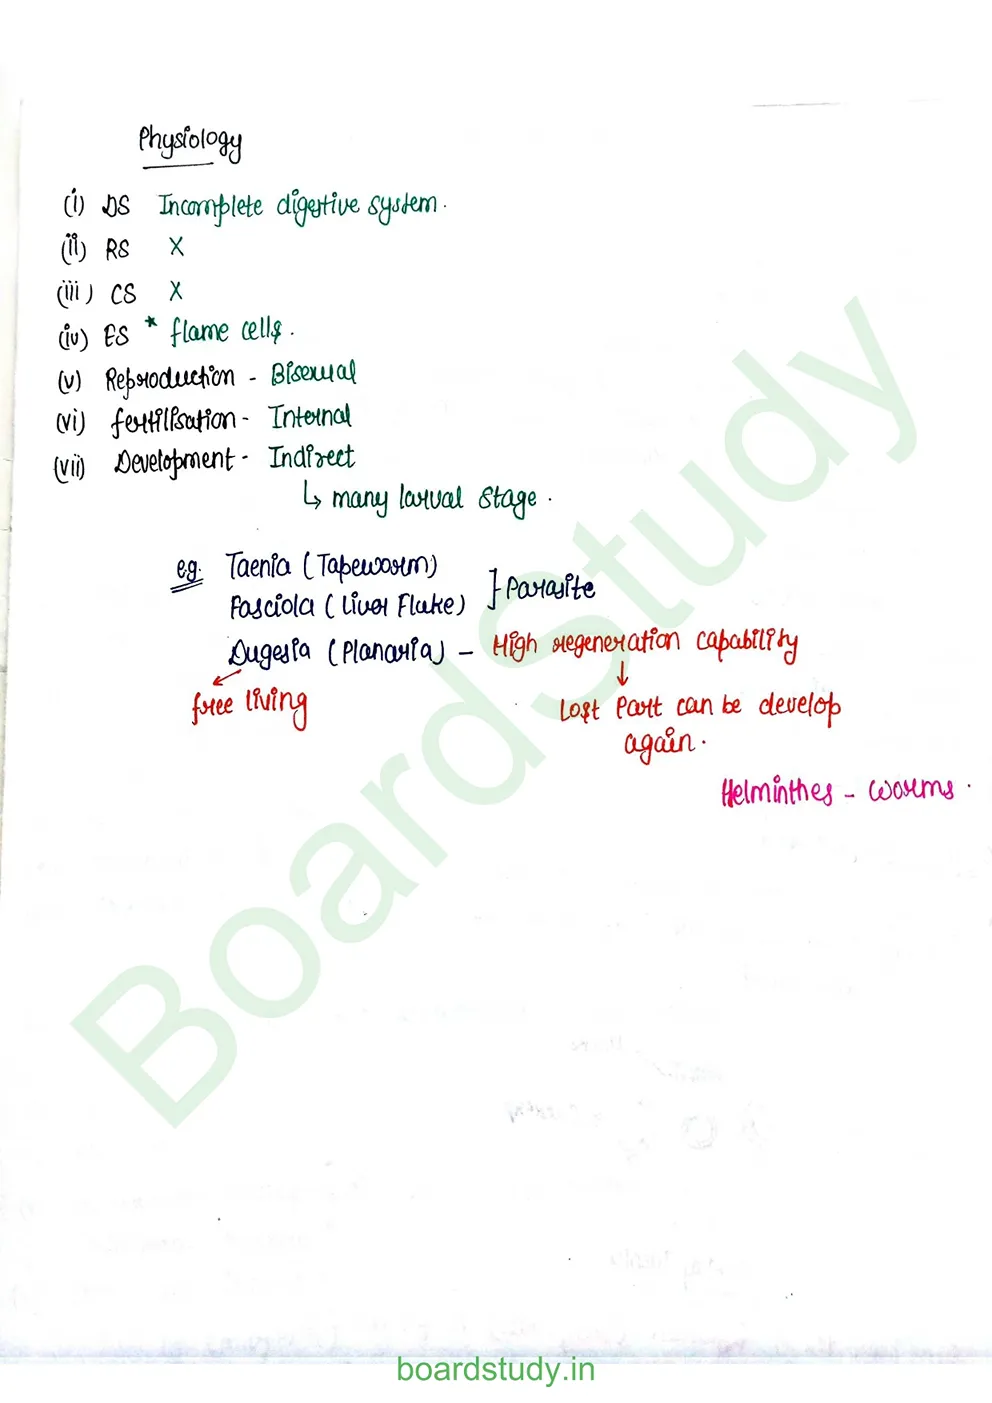 Physiology
(i) DS Incomplete digestive system.
(ii) RS X
(iii) CS X
(iv) ES * flame cells.
(v) Reproduction - Bisexual
(vi) fertilisation - Internal
(vii) Development - Indirect
↳ many larval stage.
e.g. Taenia (Tapeworm)
Fasciola (Liver Fluke) } Parasite
Dugesia (Planaria) - High regeneration capability
free living
Lost Part can be develop
again.
Helminthes - worms.
BoardStudy
boardstudy.in